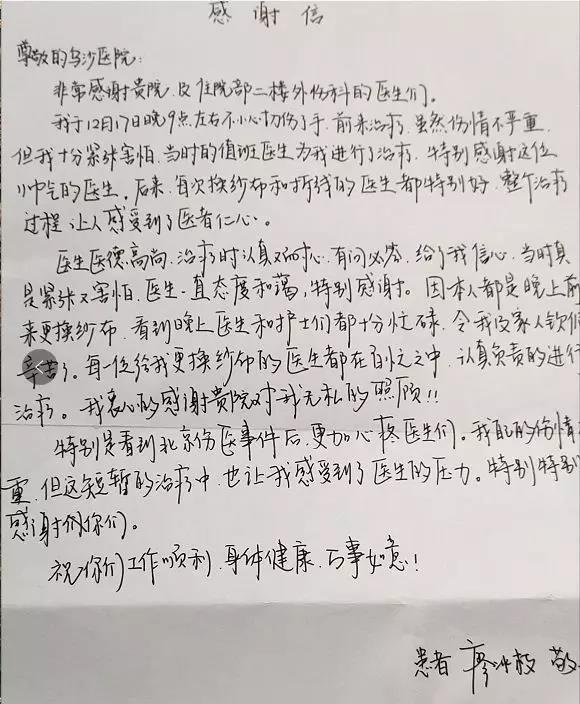 感谢信
尊敬的乌沙医院:
非常感谢贵院及住院部二楼外伤科的医生们。
我于12月17日晚9点左右不小心切伤了手,前来治疗,虽然伤情不严重,
但我十分紧张害怕,当时的值班医生为我进行了治疗,特别感谢这位
帅气的医生。后来,每次换纱布和拆线的医生都特别好,整个治疗
过程让人感受到了医者仁心。
医生医德高尚,治疗时认真又耐心,有问必答,给了我信心,当时真
是紧张又害怕,医生一直态度和蔼,特别感谢。因本人都是晚上前
来更换纱布,看到晚上医生和护士们都十分忙碌,令我及家人钦佩
辛苦了。每一位给我更换纱布的医生都在百忙之中,认真负责的进行
治疗。我衷心的感谢贵院对我无私的照顾!!
特别是看到北京伤医事件后,更加心疼医生们。我自己的伤情
重,但这短暂的治疗中,也让我感受到了医生的压力。特别特别
感谢你们。
祝你们工作顺利,身体健康,万事如意!
患者 廖 枝 敬